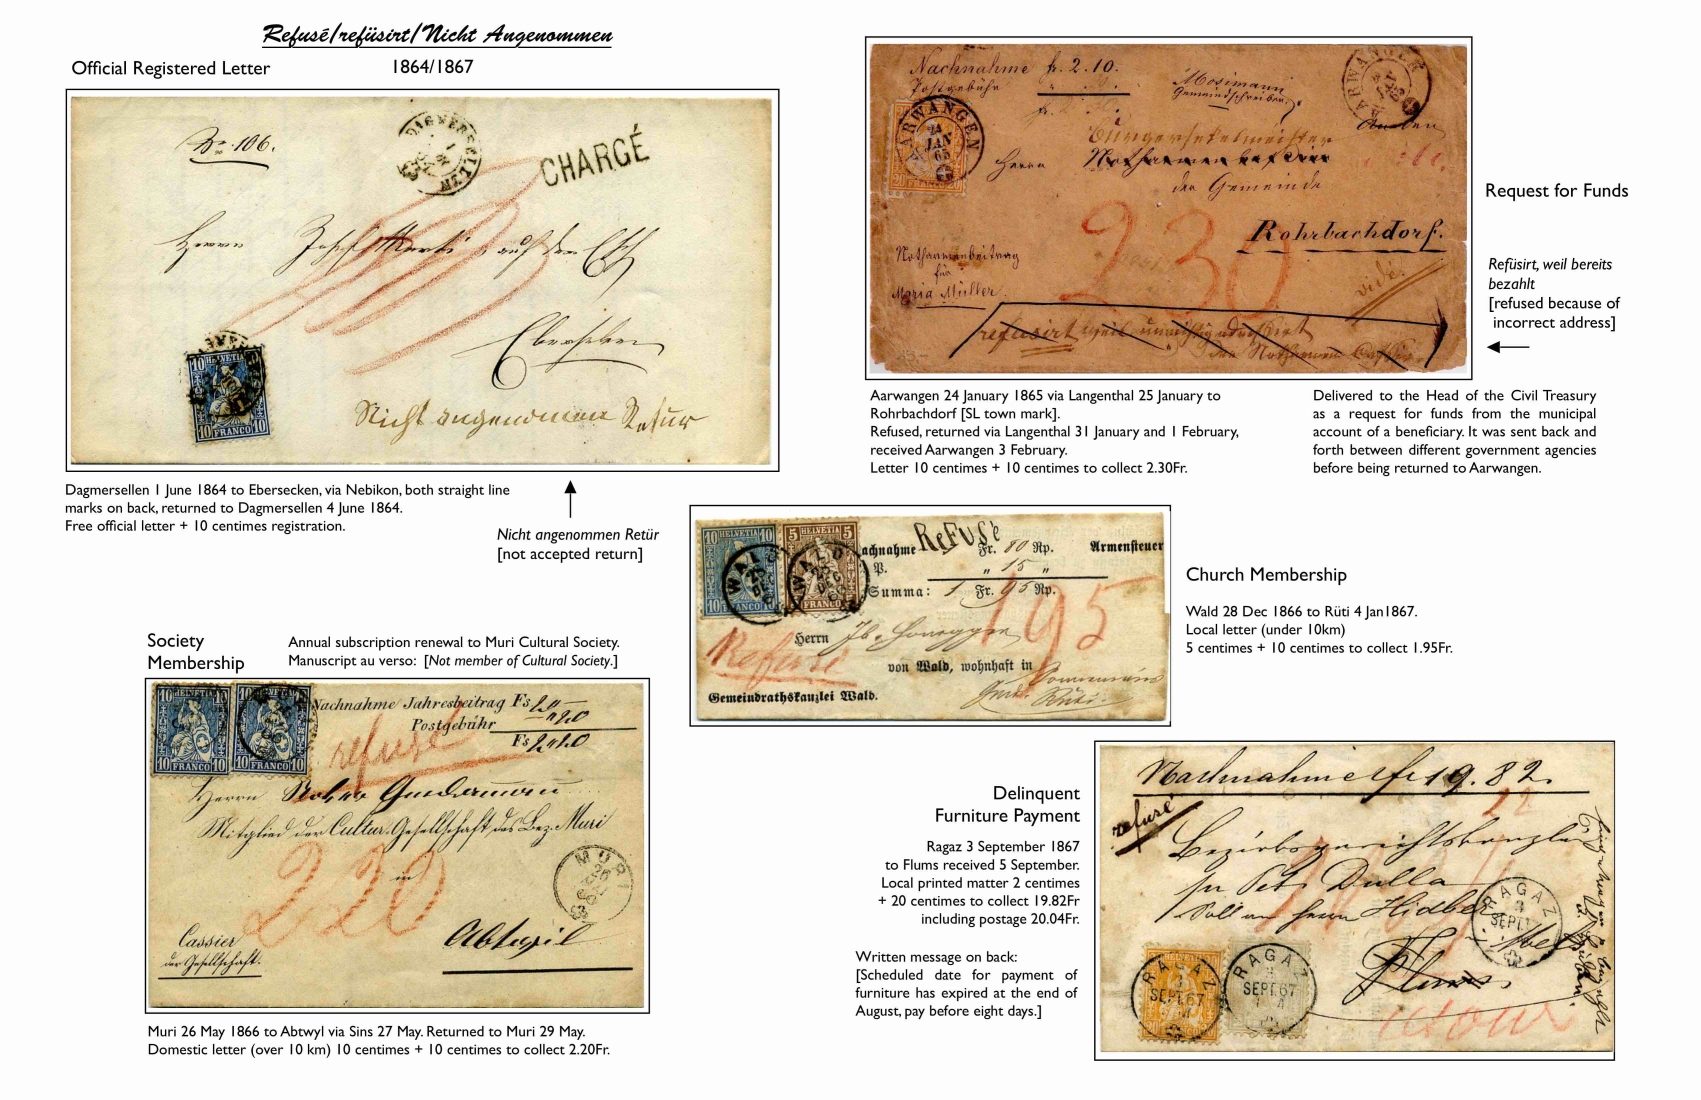 Refusé/refüsirt/Nicht Angenommen
Official Registered Letter
1864/1867
No. 106.
DAGMERSELLEN
CHARGÉ
Herrn auf der
Ebersecken
10 HELVETIA
10 FRANCO 10
Nicht angenommen Retur
Dagmersellen 1 June 1864 to Ebersecken, via Nebikon, both straight line
marks on back, returned to Dagmersellen 4 June 1864.
Free official letter + 10 centimes registration.
Nicht angenommen Retür
[not accepted return]
Nachnahme fr. 2.10.
Postgebühr
Mosimann
Gemeindschreiber
AARWANGEN
AARWANGEN
24
JAN
65
20 FRANCO
Herrn
der Gemeinde
Rohrbachdorf.
230
Notharmenbeitrag
für
Maria Müller.
vide
refusirt weil
Request for Funds
Refüsirt, weil bereits
bezahlt
[refused because of
incorrect address]
Aarwangen 24 January 1865 via Langenthal 25 January to
Rohrbachdorf [SL town mark].
Refused, returned via Langenthal 31 January and 1 February,
received Aarwangen 3 February.
Letter 10 centimes + 10 centimes to collect 2.30Fr.
Delivered to the Head of the Civil Treasury
as a request for funds from the municipal
account of a beneficiary. It was sent back and
forth between different government agencies
before being returned to Aarwangen.
10 HELVETIA 10
10 FRANCO
5 HELVETIA 5
FRANCO
WALD
WALD
DEC
achnahme Fr. 80 Rp.
ReFUSé
Armensteuer
P. " 15 "
Summa: 1 Fr. 95 Rp.
195
Refusé
Herrn Jb. Honegger
von Wald, wohnhaft in
Rüti.
Gemeindrathskanzlei Wald.
Church Membership
Wald 28 Dec 1866 to Rüti 4 Jan1867.
Local letter (under 10km)
5 centimes + 10 centimes to collect 1.95Fr.
Society
Membership
Annual subscription renewal to Muri Cultural Society.
Manuscript au verso: [Not member of Cultural Society.]
10 HELVETIA 10
10 FRANCO 10
10 HELVETIA 10
10 FRANCO 10
Nachnahme Jahresbeitrag Fs 2."
Postgebühr " 20
Fs 2 " 20
refusé
Herrn
Mitglied der Cultur-Gesellschaft des Bez. Muri
in
220
MURI
26
Abtwil
Cassier
der Gesellschaft.
Muri 26 May 1866 to Abtwyl via Sins 27 May. Returned to Muri 29 May.
Domestic letter (over 10 km) 10 centimes + 10 centimes to collect 2.20Fr.
Delinquent
Furniture Payment
Ragaz 3 September 1867
to Flums received 5 September.
Local printed matter 2 centimes
+ 20 centimes to collect 19.82Fr
including postage 20.04Fr.
Written message on back:
[Scheduled date for payment of
furniture has expired at the end of
August, pay before eight days.]
Nachnahme fr 19.82.
22
refusé
Bezirksgerichtskanzlei
RAGAZ
3
SEPT.
Flums
RAGAZ
3
SEPT.67
RAGAZ
3
SEPT.67
retour